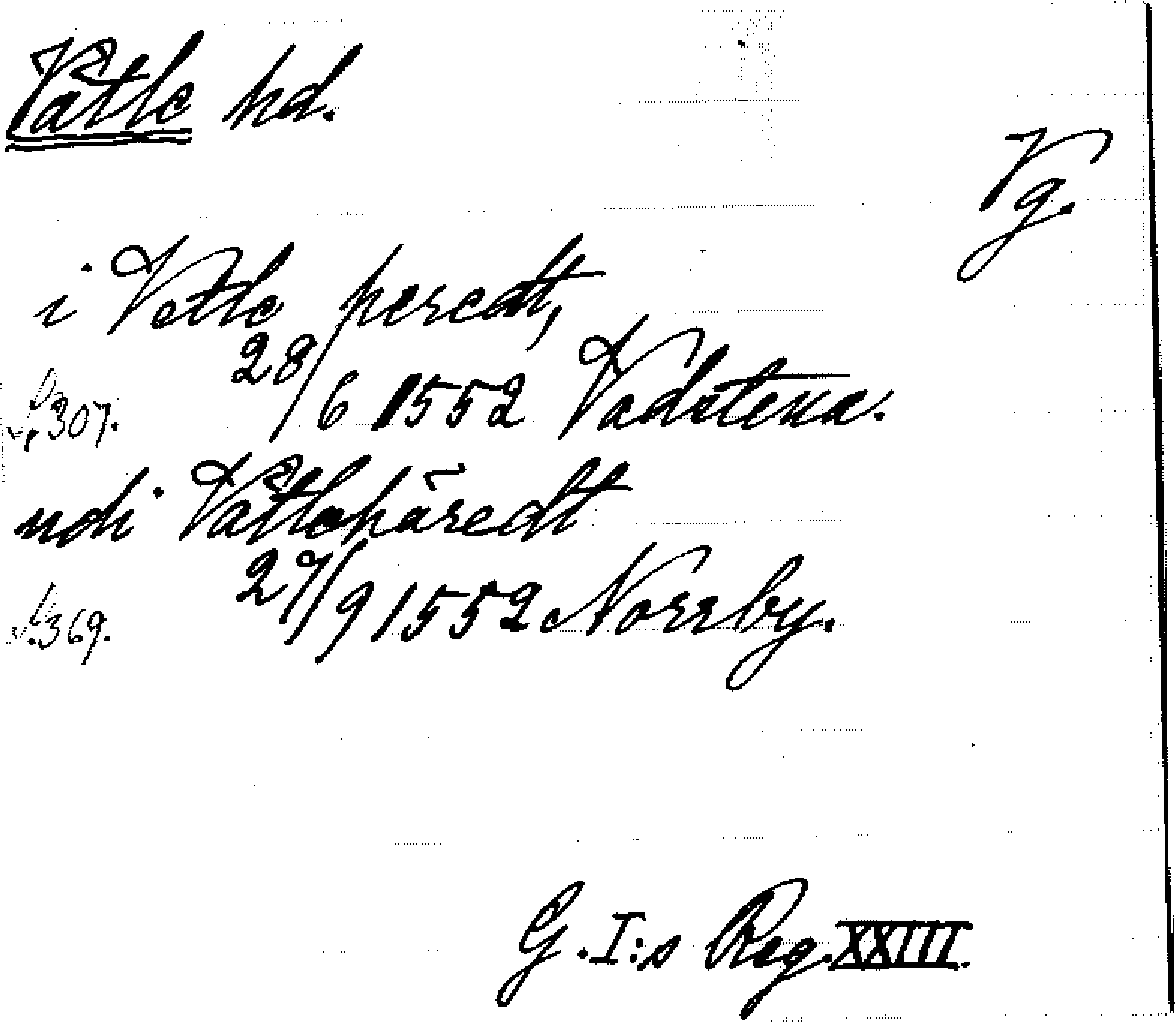 Vätle hd.
Vg.
i Vetle heredt,
28/6 1552 Vadstena.
s. 307.
udi Vätlehäredt
27/9 1552 Norrby.
s. 369.
G. I:s Reg. XXIII.